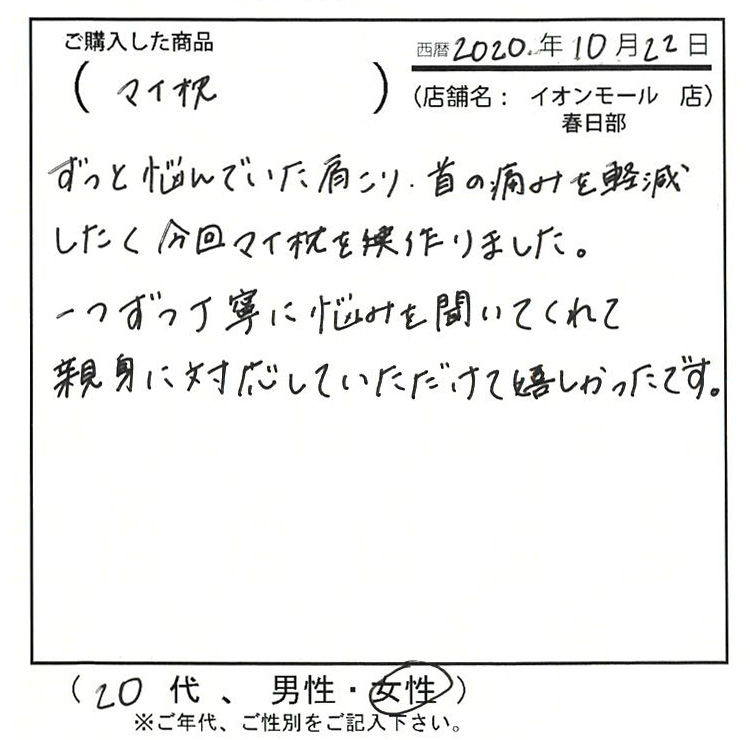 ご購入した商品
西暦2020.年10月22日
(マイ枕)
(店舗名： イオンモール 店)
春日部
ずっと悩んでいた肩こり、首の痛みを軽減
したく今回マイ枕を作りました。
一つずつ丁寧に悩みを聞いてくれて
親身に対応していただけて嬉しかったです。
(20代、男性・女性)
※ご年代、ご性別をご記入下さい。